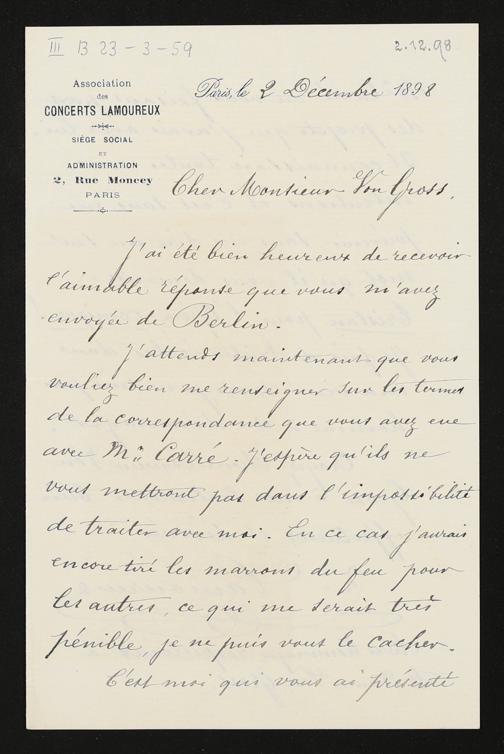 III B 23-3-59
2.12.98
Association
des
CONCERTS LAMOUREUX
SIÈGE SOCIAL
ET
ADMINISTRATION
2, Rue Moncey
PARIS
Paris, le 2 Décembre 1898
Cher Monsieur Von Gross,
J'ai été bien heureux de recevoir
l'aimable réponse que vous m'avez
envoyée de Berlin.
J'attends maintenant que vous
vouliez bien me renseigner sur les termes
de la correspondance que vous avez eue
avec Mr. Carré. J'espère qu'ils ne
vous mettront pas dans l'impossibilité
de traiter avec moi. En ce cas j'aurais
encore tiré les marrons du feu pour
les autres, ce qui me serait très
pénible, je ne puis vous le cacher.
C'est moi qui vous ai présenté